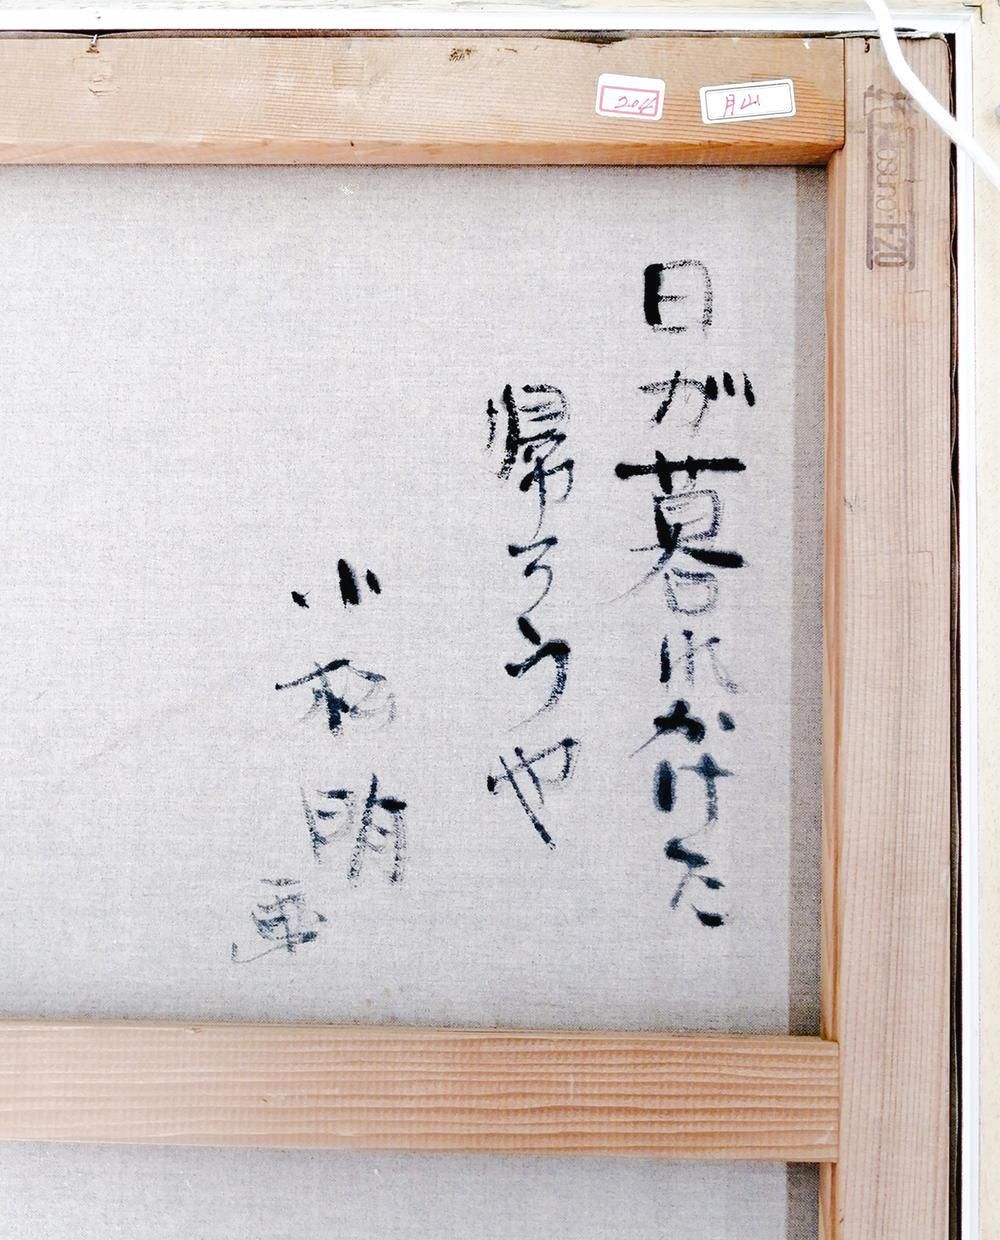 日が暮れかけた
帰ろうや
小松明
画
月山
F20